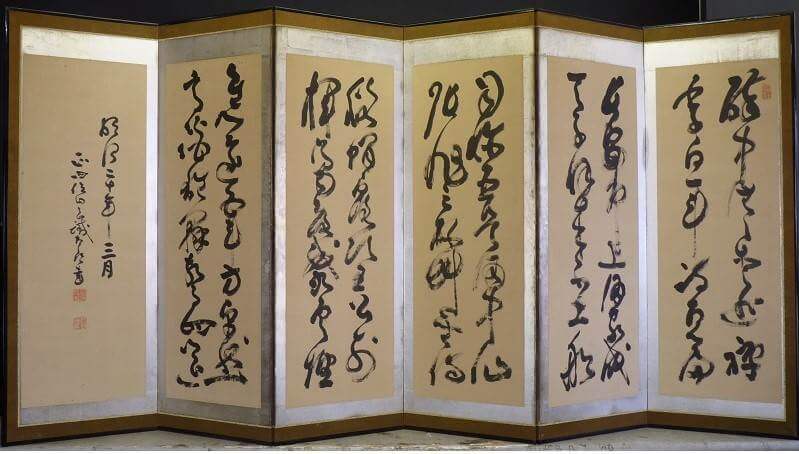 醉中往々愛逃禅
李白一斗詩百篇
長安市上酒家眠
天子呼来不上船
自称臣是酒中仙
張旭三杯草聖傳
脱帽露頂王公前
揮毫落紙如雲煙
焦遂五斗方卓然
高談雄辨驚四筵
明治二十年三月
正四位山岡鐵太郎書